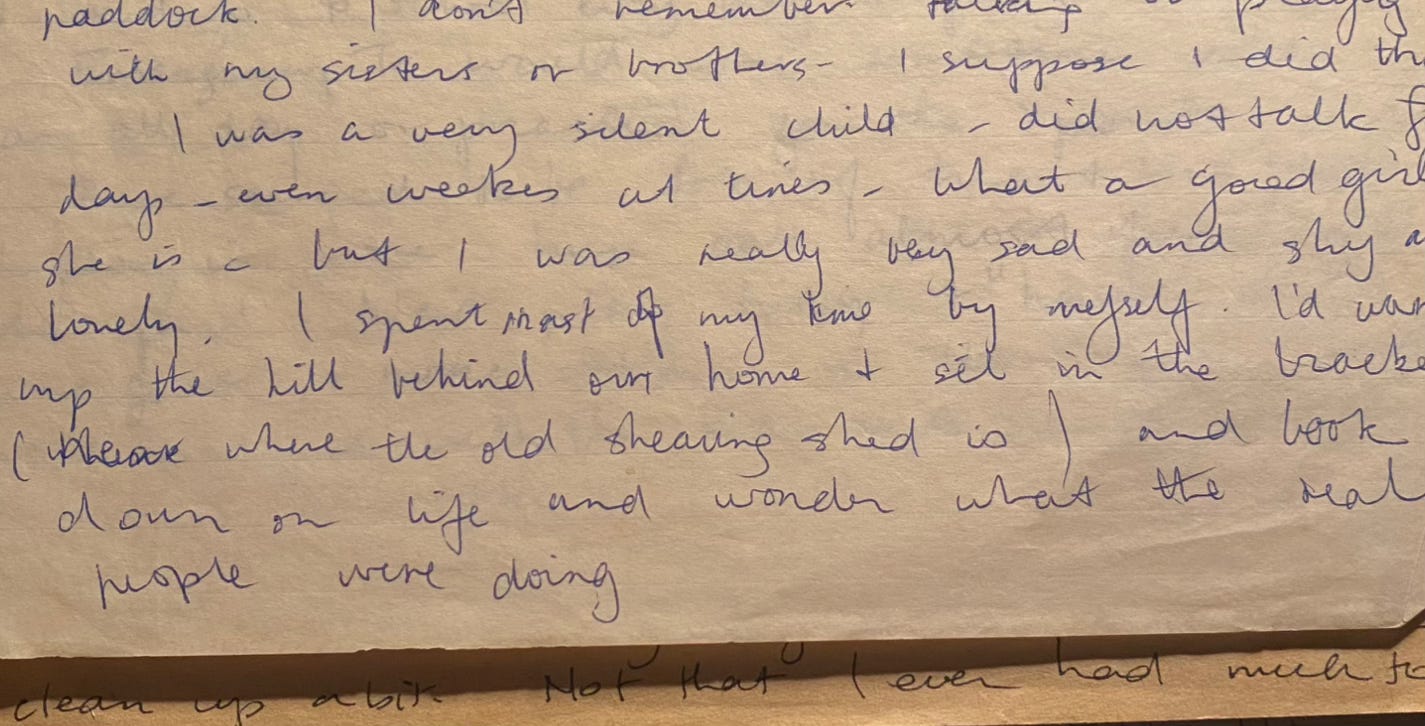 paddock. I don't remember talking or playing
with my sisters or brothers - I suppose I did th
I was a very silent child - did not talk f
days - even weekes at times - What a good girl
she is - but I was really very sad and shy a
lonely. I spent most of my time by meself. I'd wan
up the hill behind our home + sit in the bracke
( where the old shearing shed is ) and look
down on life and wonder what the real
people were doing
clean up a bit. Not that I ever had much to